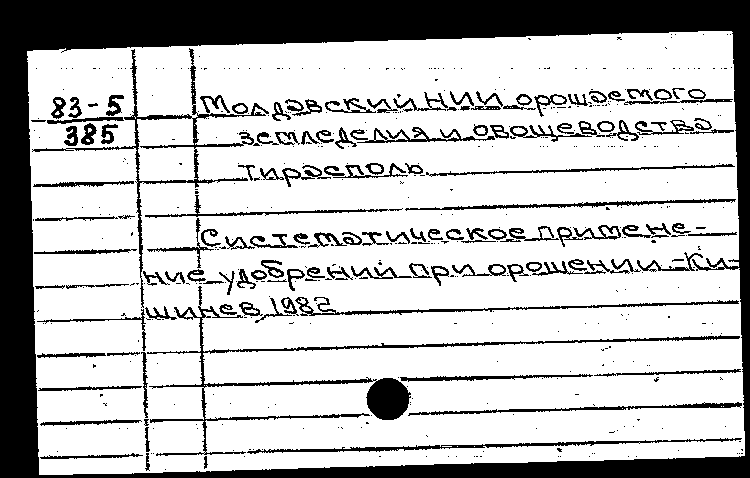 83-5
385
Молдавский НИИ орошаемого
земледелия и овощеводства
Тирасполь
Систематическое примене-
ние удобрений при орошении.-Ки-
шинев, 1982